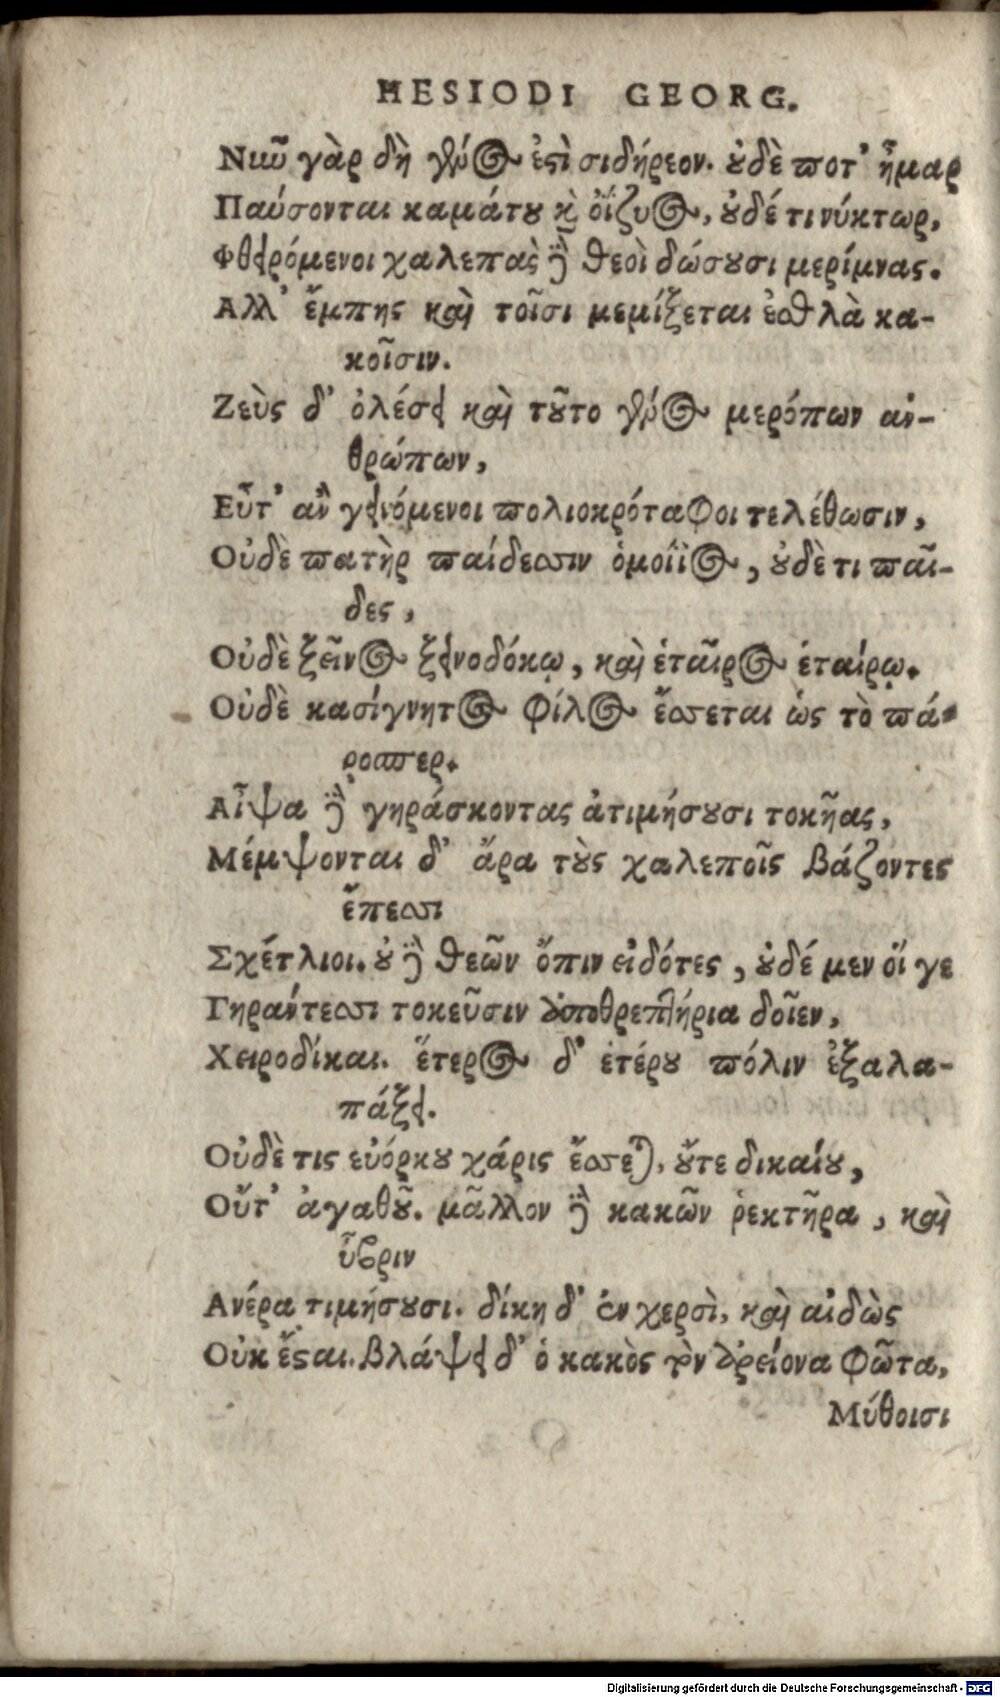 HESIODI GEORG.
Νῦν γὰρ δὴ γένος ἐστὶ σιδήρεον. οὐδὲ ποτ' ἦμαρ
Παύσονται καμάτου καὶ ὀϊζύος, οὐδέ τι νύκτωρ,
Φθειρόμενοι χαλεπὰς δὲ θεοὶ δώσουσι μερίμνας.
Αλλ' ἔμπης καὶ τοῖσι μεμίξεται ἐσθλὰ κα-
κοῖσιν.
Ζεὺς δ' ὀλέσει καὶ τοῦτο γένος μερόπων ἀν-
θρώπων,
Εὖτ' ἂν γεινόμενοι πολιοκρόταφοι τελέθωσιν,
Οὐδὲ πατὴρ παίδεσσιν ὁμοίϊος, οὐδὲ τι παῖ-
δες,
Οὐδὲ ξεῖνος ξεινοδόκῳ, καὶ ἑταῖρος ἑταίρῳ.
Οὐδὲ κασίγνητος φίλος ἔσσεται ὡς τὸ πά-
ροσπερ.
Αἶψα δὲ γηράσκοντας ἀτιμήσουσι τοκῆας,
Μέμψονται δ' ἄρα τοὺς χαλεποῖς βάζοντες
ἔπεσσι
Σχέτλιοι. οὐ δὲ θεῶν ὄπιν εἰδότες, οὐδέ μεν οἵ γε
Γηράντεσσι τοκεῦσιν ἀποθρεπτήρια δοῖεν,
Χειροδίκαι. ἕτερος δ' ἑτέρου πόλιν ἐξαλα-
πάξει.
Οὐδὲ τις εὐόρκου χάρις ἔσσεται, οὔτε δικαίου,
Οὔτ' ἀγαθοῦ. μᾶλλον δὲ κακῶν ῥεκτῆρα, καὶ
ὕβριν
Ανέρα τιμήσουσι. δίκη δ' ἐν χερσὶ, καὶ αἰδὼς
Οὐκ ἔσται. βλάψει δ' ὁ κακὸς τὸν ἀρείονα φῶτα,
Μύθοισι
Digitalisierung gefördert durch die Deutsche Forschungsgemeinschaft - DFG